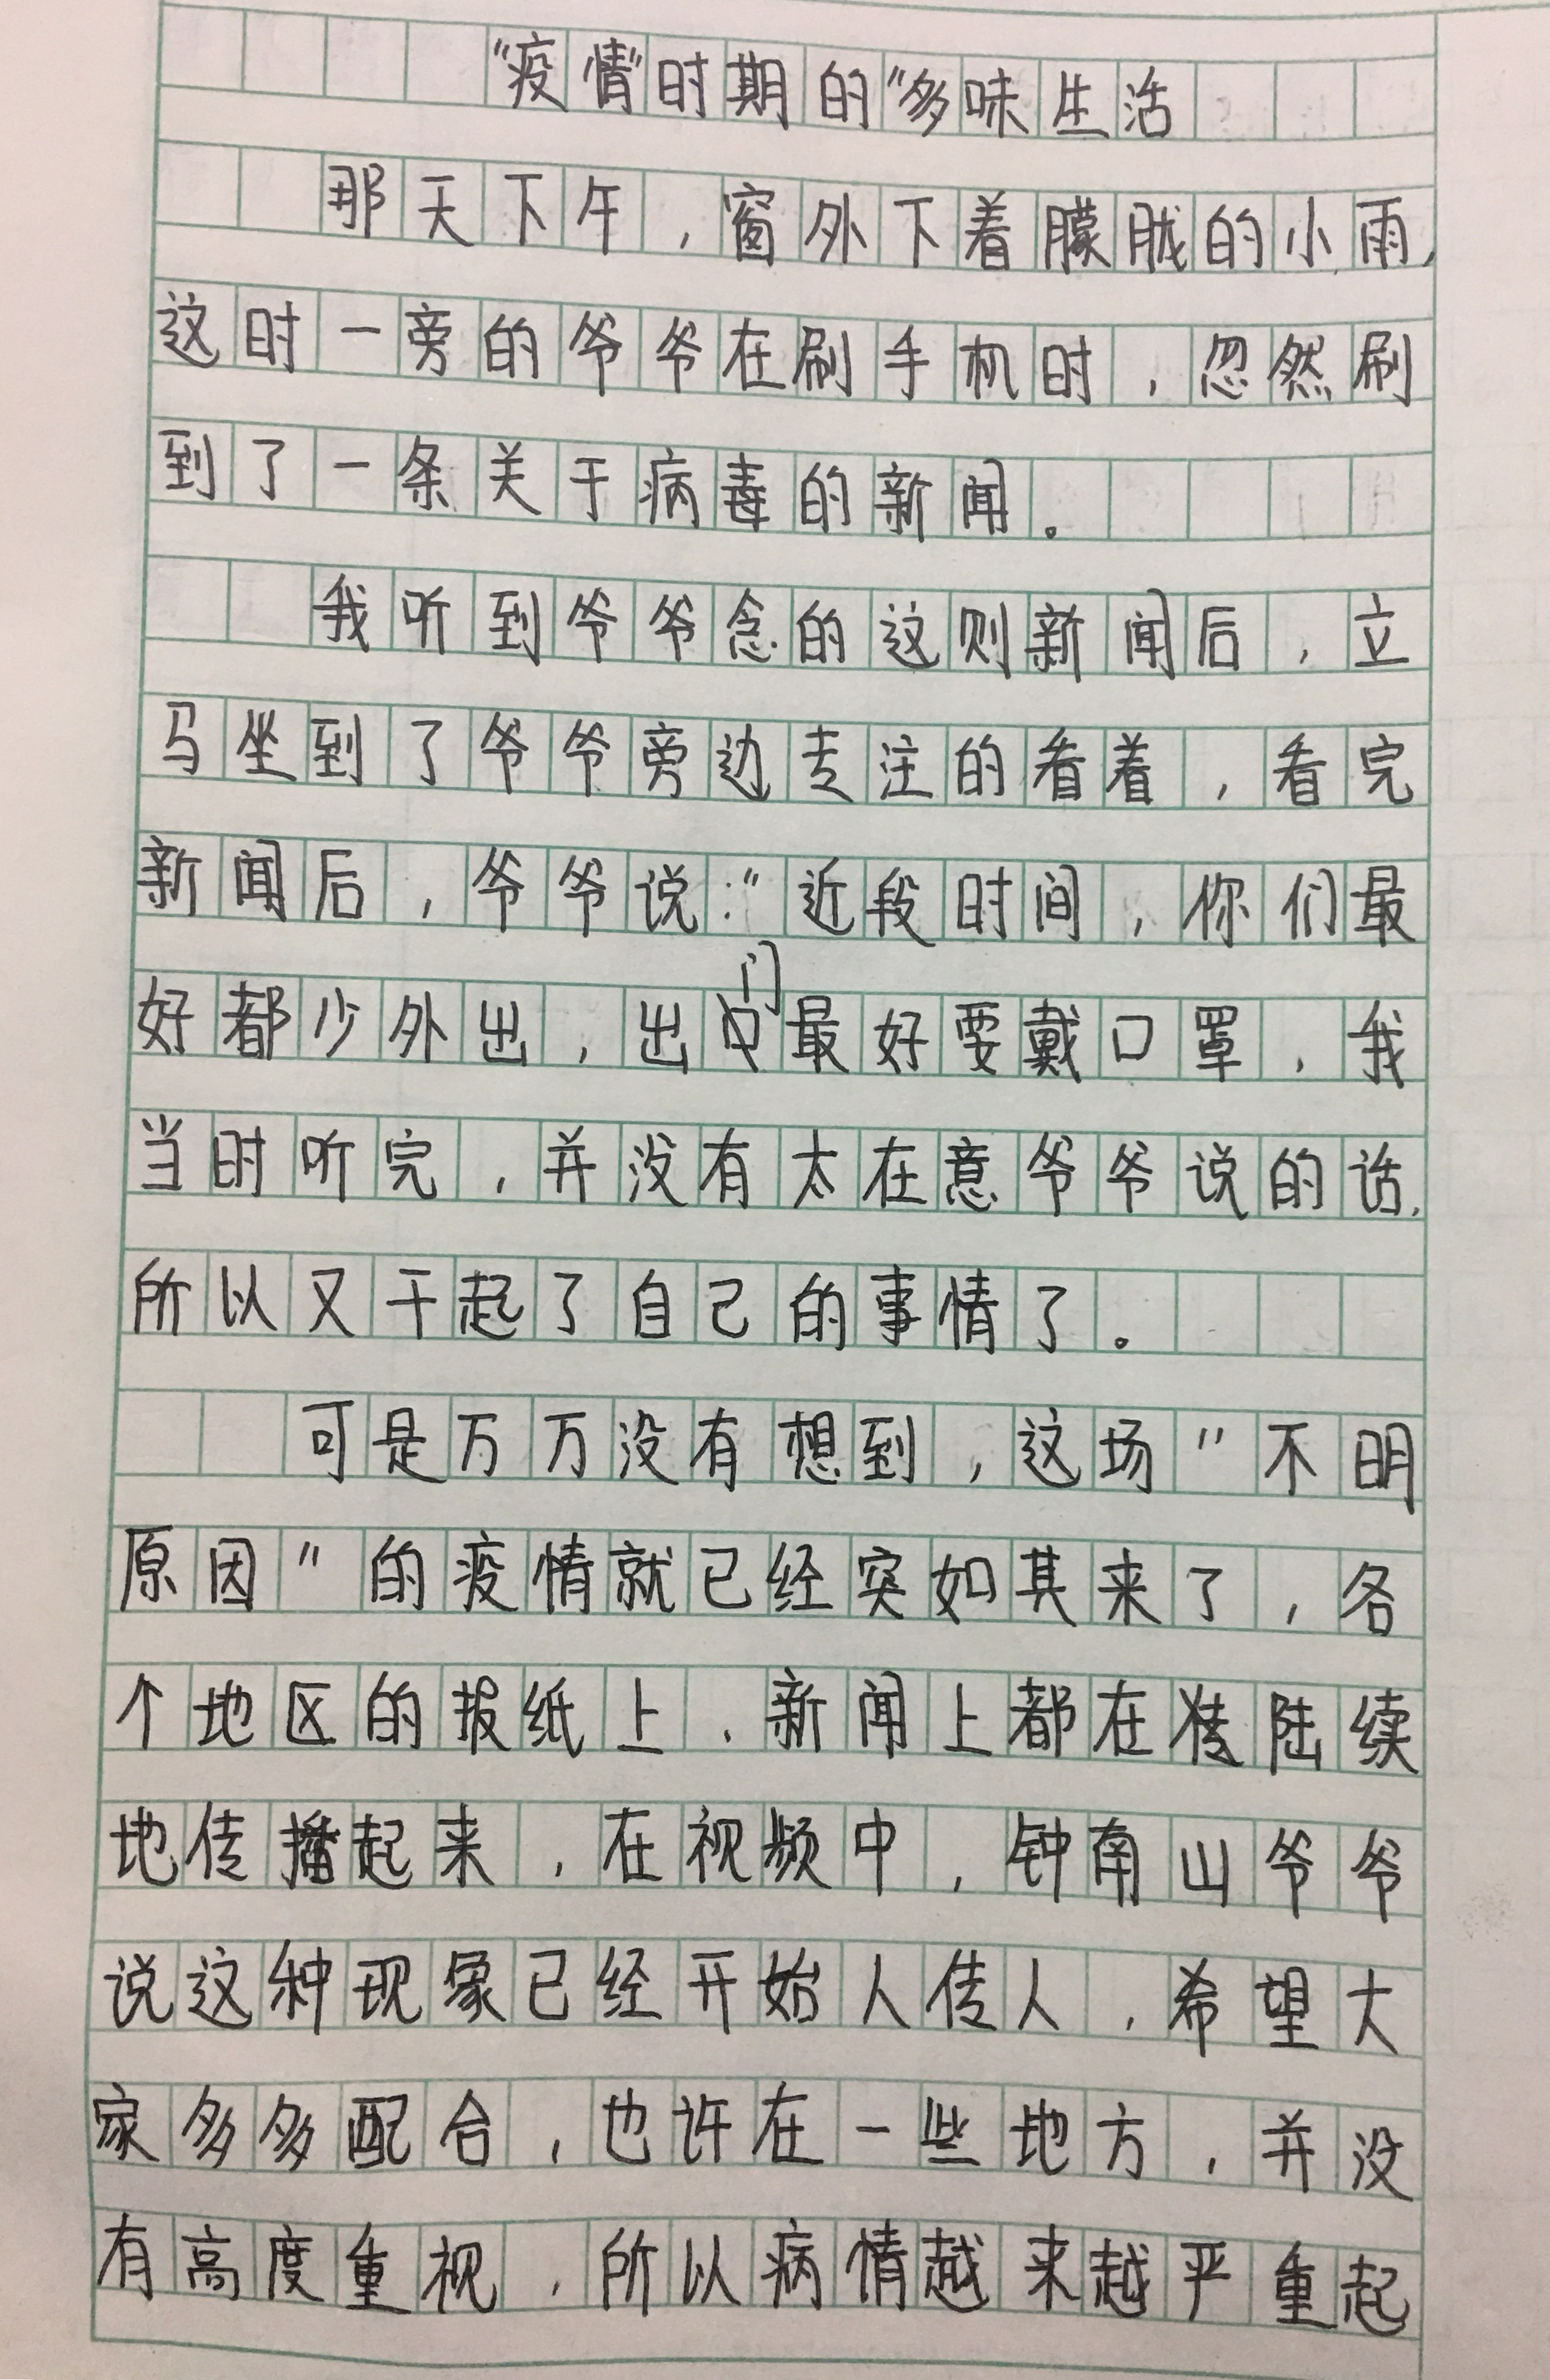 "疫情"时期的"多味生活
那天下午，窗外下着朦胧的小雨，
这时一旁的爷爷在刷手机时，忽然刷
到了一条关于病毒的新闻。
我听到爷爷念的这则新闻后，立
马坐到了爷爷旁边专注的看着，看完
新闻后，爷爷说："近段时间，你们最
好都少外出，出门最好要戴口罩，我
当时听完，并没有太在意爷爷说的话，
所以又干起了自己的事情了。
可是万万没有想到，这场"不明
原因"的疫情就已经突如其来了，各
个地区的报纸上、新闻上都在陆续
地传播起来，在视频中，钟南山爷爷
说这种现象已经开始人传人，希望大
家多多配合，也许在一些地方，并没
有高度重视，所以病情越来越严重起